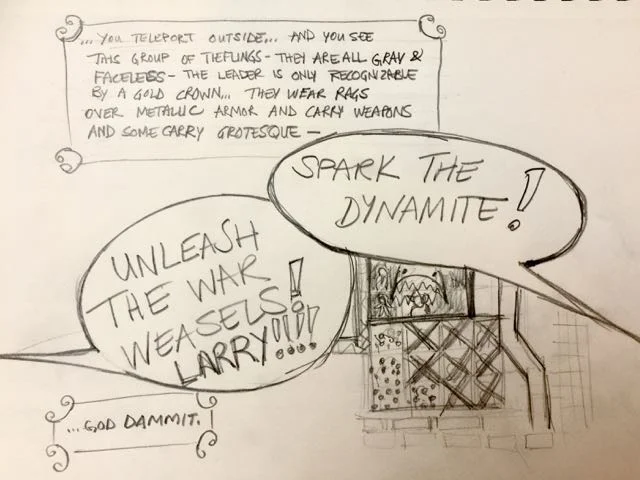 ...YOU TELEPORT OUTSIDE... AND YOU SEE
THIS GROUP OF TIEFLINGS - THEY ARE ALL GRAY &
FACELESS - THE LEADER IS ONLY RECOGNIZABLE
BY A GOLD CROWN... THEY WEAR RAGS
OVER METALLIC ARMOR AND CARRY WEAPONS
AND SOME CARRY GROTESQUE —
SPARK THE
DYNAMITE!
UNLEASH
THE WAR
WEASELS!
LARRY!!!!
...GOD DAMMIT.